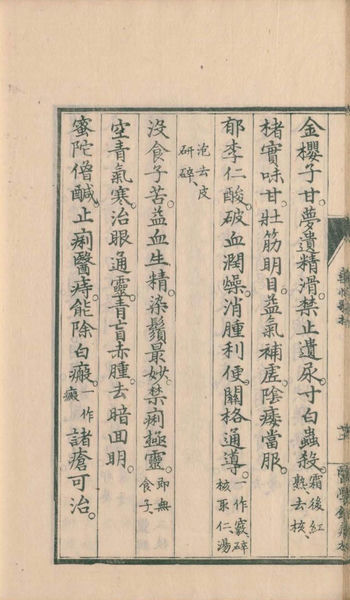 金櫻子甘。夢遺精滑。禁止遺尿。寸白蟲殺。霜後紅熟去核、
楮實味甘。壯筋明目。益氣補虛。陰痿當服。
郁李仁酸。破血潤燥。消腫利便。關格通導。一作竅碎核取仁湯
泡去皮研碎、
沒食子苦。益血生精。染鬚最妙。禁痢極靈。即無食子、
空青氣寒。治眼通靈。青盲赤腫。去暗回明。
蜜陀僧鹹。止痢醫痔。能除白瘢。一作癜諸瘡可治。